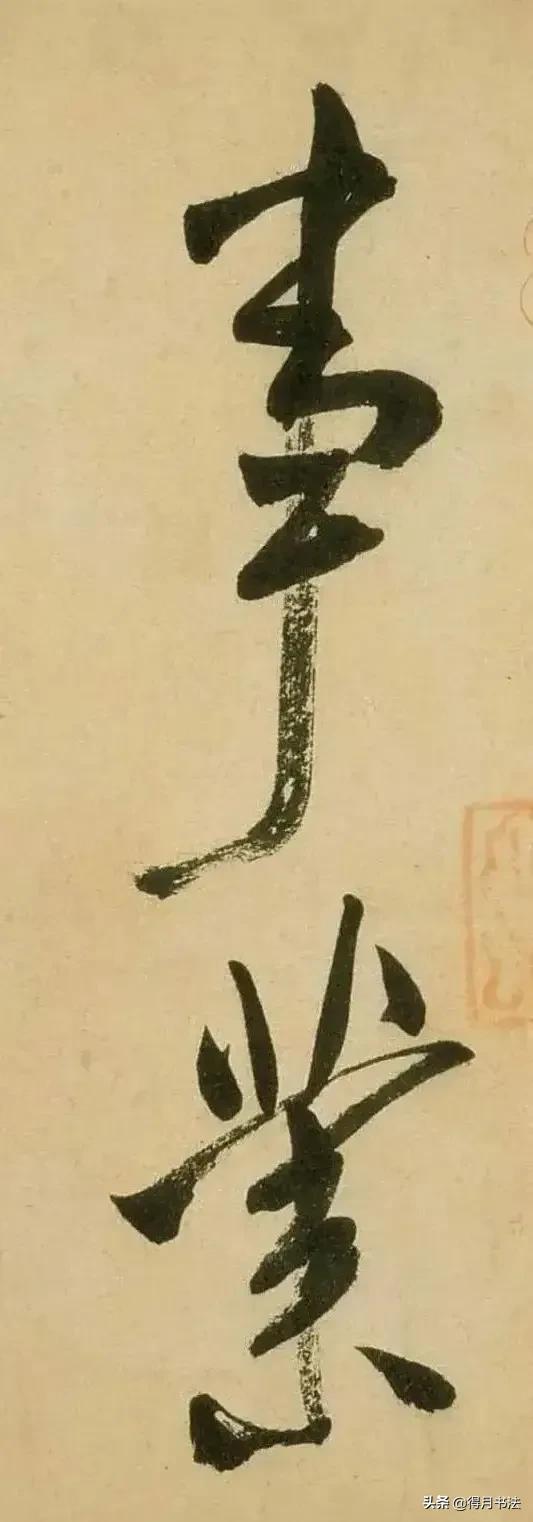 事業
头条 @得月书法